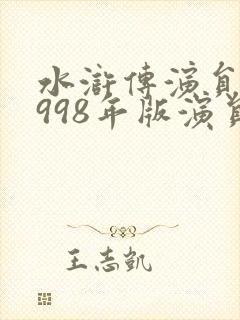 水滸傳演員
998年版演員
王志凱